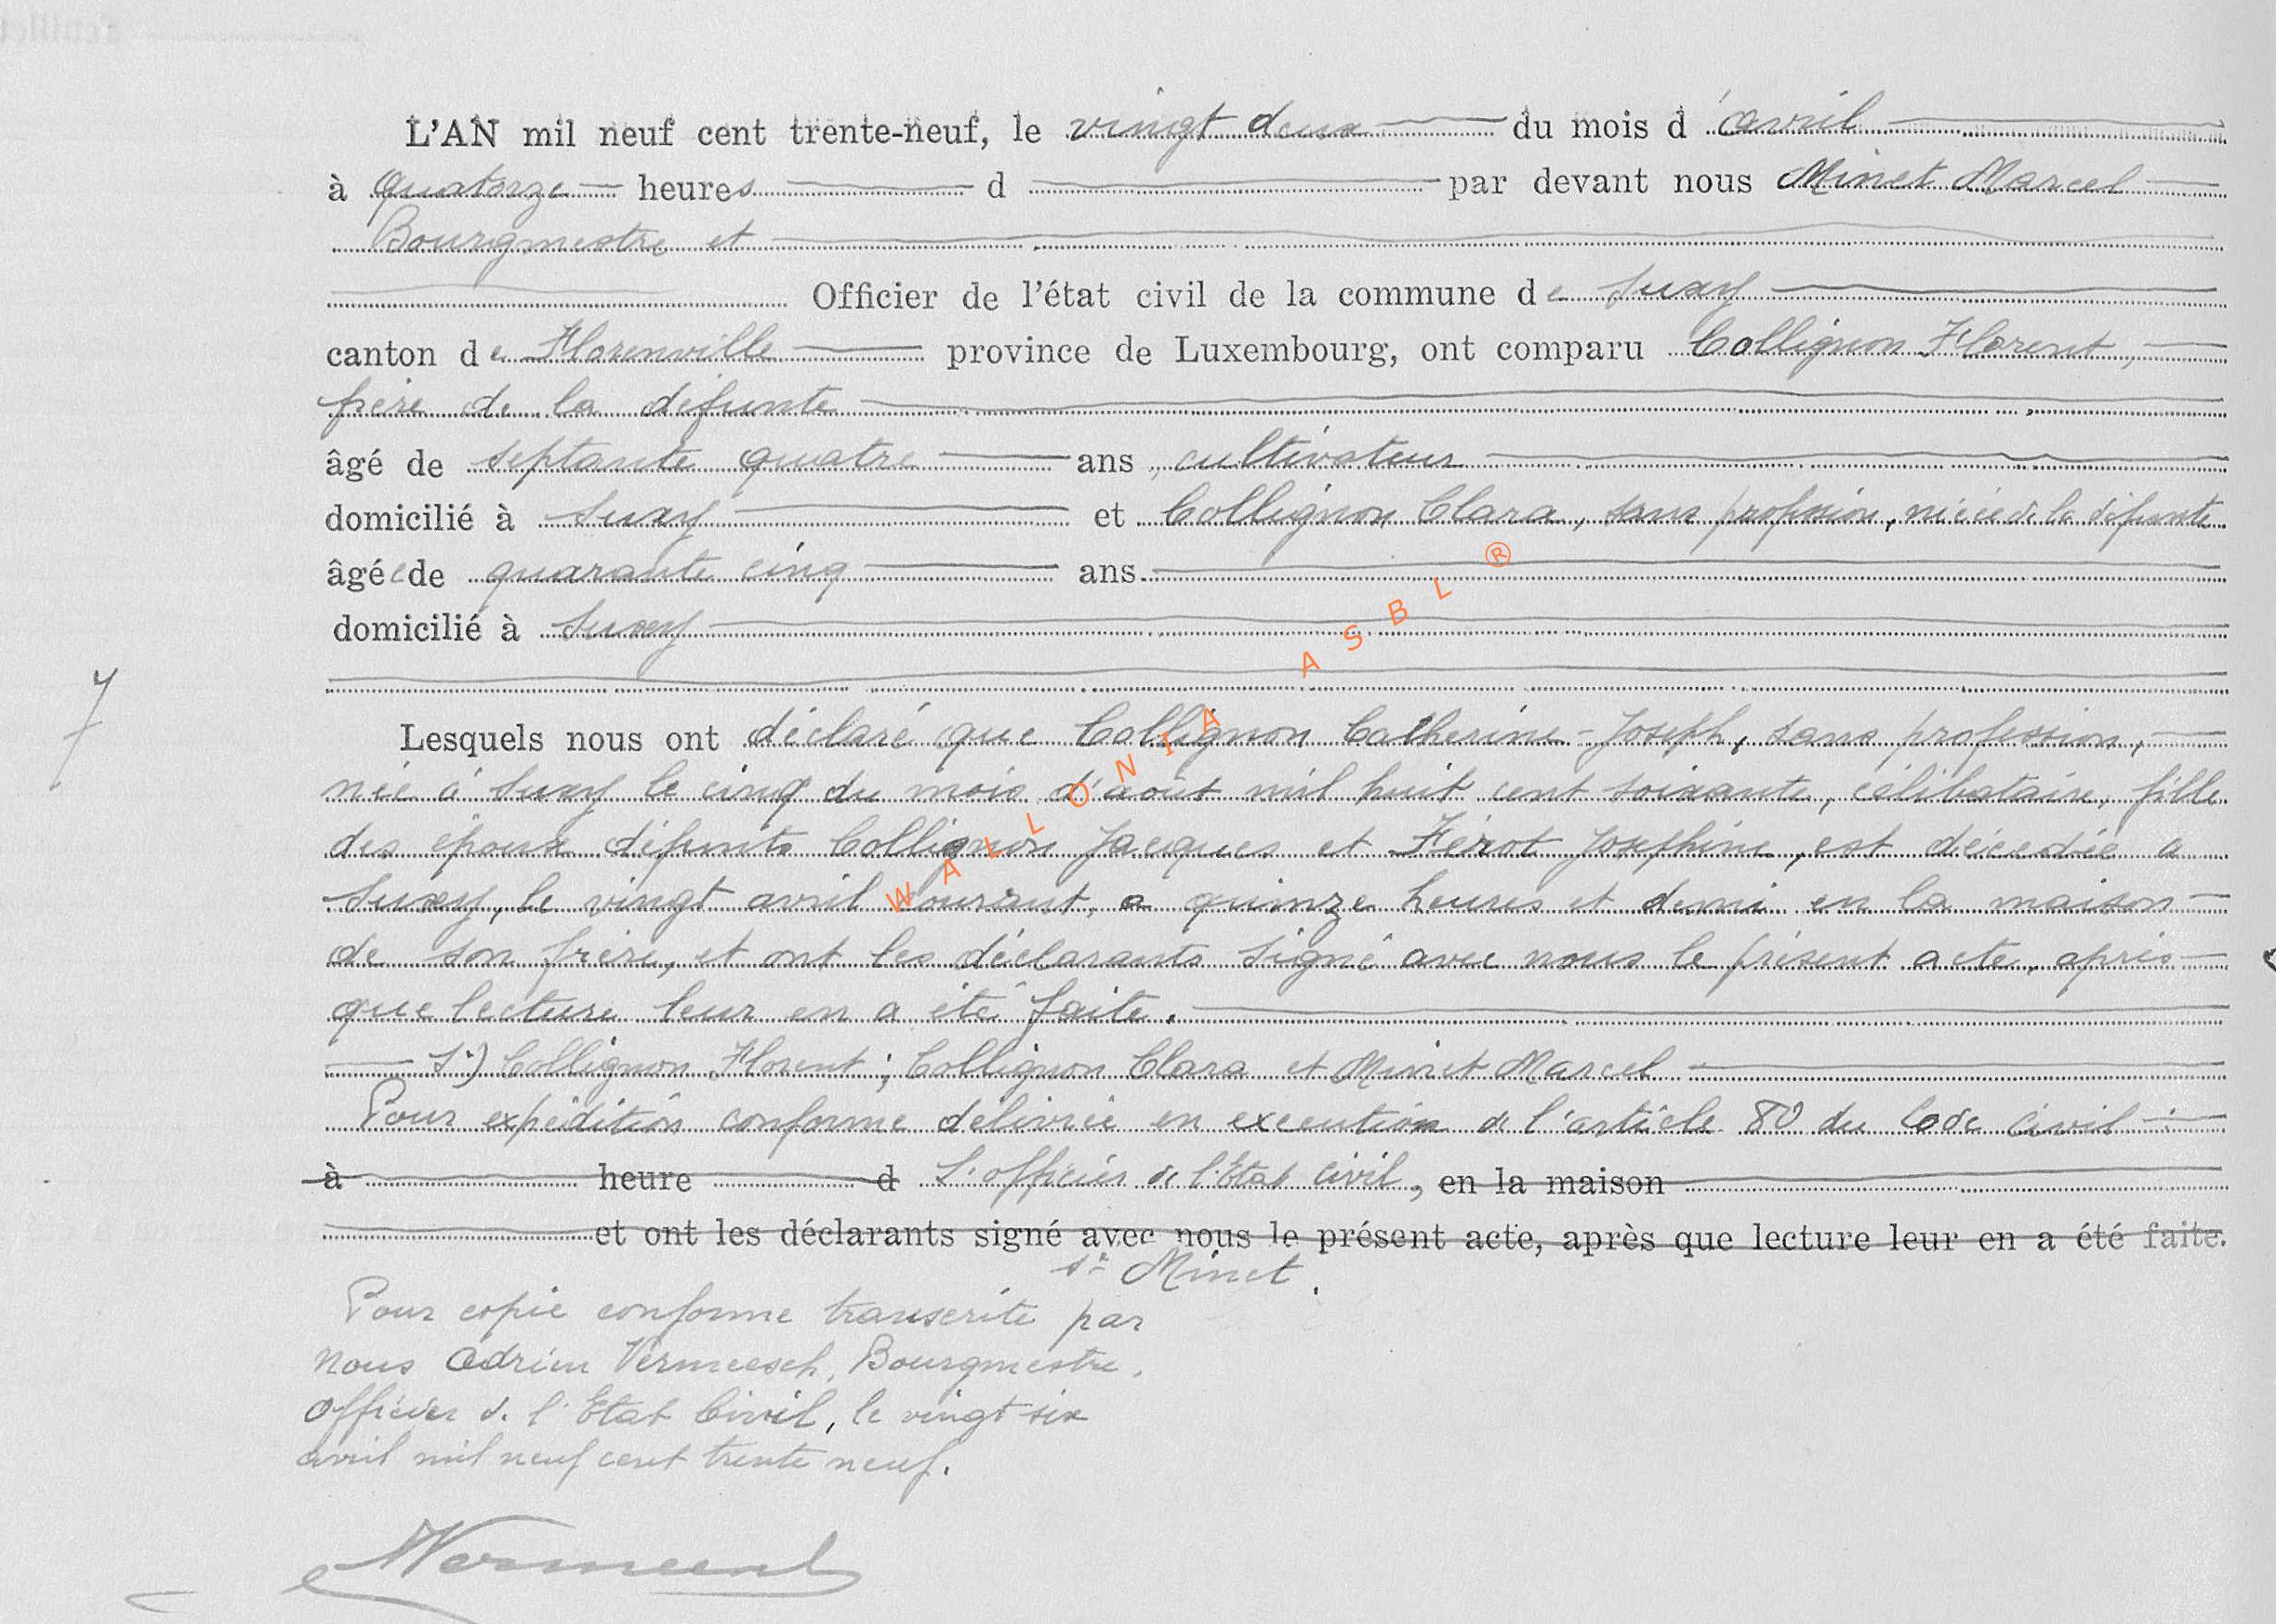 L'AN mil neuf cent trente-neuf, le vingt deux du mois d'avril
à quatorze heures d par devant nous Minet Marcel
Bourgmestre et
Officier de l'état civil de la commune de Suxy
canton de Florenville province de Luxembourg, ont comparu Collignon Florent,
frère de la défunte
âgé de septante quatre ans, cultivateur
domicilié à Suxy et Collignon Clara, sans profession, nièce de la défunte
âgée de quarante cinq ans
domicilié à Suxy
7
Lesquels nous ont déclaré que Collignon Catherine-Joseph, sans profession,
née à Suxy le cinq du mois d'août mil huit cent soixante, célibataire, fille
des époux défunts Collignon Jacques et Férot Joséphine, est décédée a
Suxy, le vingt avril courant, a quinze heures et demi en la maison
de son frère, et ont les déclarants signé avec nous le présent acte, après
que lecture leur en a été faite.
S.) Collignon Florent; Collignon Clara et Minet Marcel
Pour expédition conforme délivrée en exécution de l'article 80 du Code Civil :
à heure d L'officier de l'Etat Civil, en la maison
et ont les déclarants signé avec nous le présent acte, après que lecture leur en a été faite.
sr Minet.
Pour copie conforme transcrite par
nous Adrien Vermeesch, Bourgmestre,
Officier d. l'Etat Civil, le vingt-six
avril mil neuf cent trente neuf.
WALLONIA ASBL ®